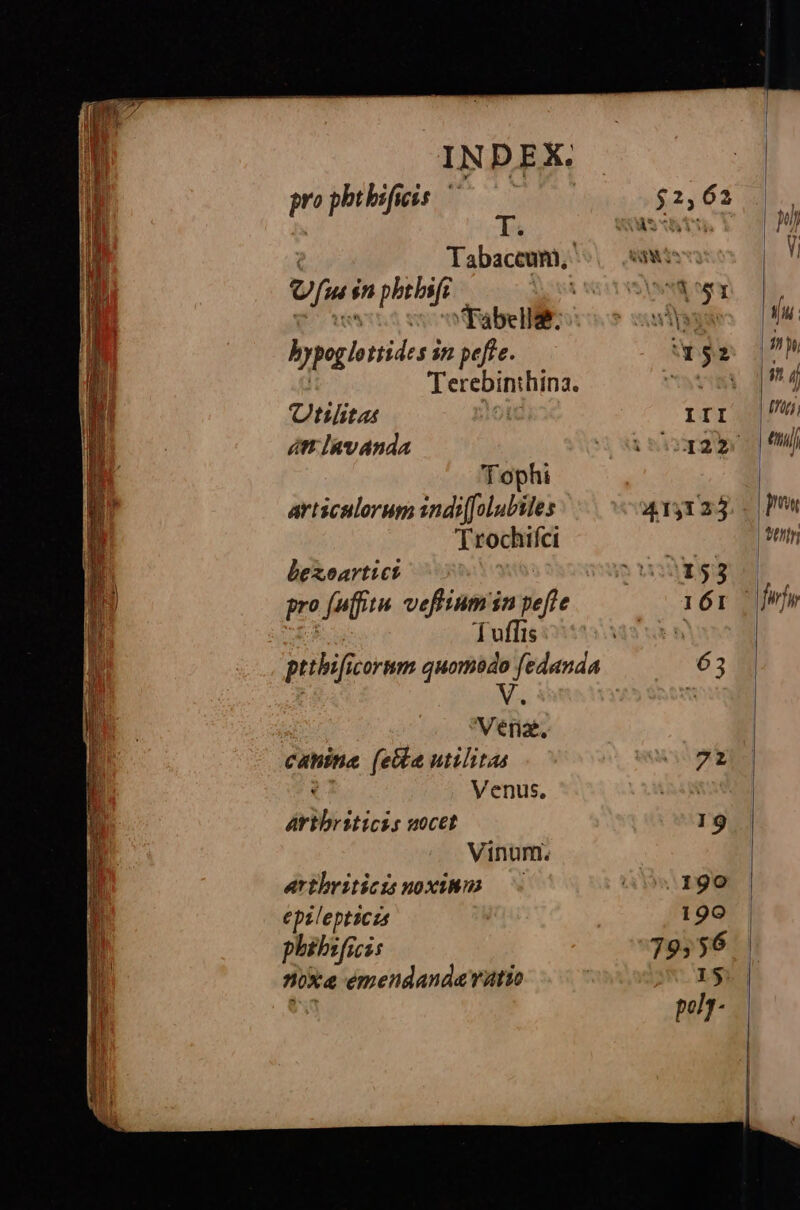 INDEX.
pro phthiſicis 52, 62
T.
Tabaccum,
Uſus in phthiſi 51
Tabellæ.
hypoglottides in peſte. 152
Terebinthina.
Utilitas 111
an lavanda 122
Tophi
articulorum indiſſolubiles 41, 123
Trochiſci
bezoartici 153
pro ſuffitu veſtium in peſte 161
Tuſſis
ptthiſicorum quomodo ſedanda 63
V.
Venæ.
canina ſectæ utilitas 72
Venus.
arthriticis nocet 19
Vinum.
arthriticis noxium 190
epilepticis 190
phthiſicis 79, 56
noxæ emendandæ ratio 15
poly-